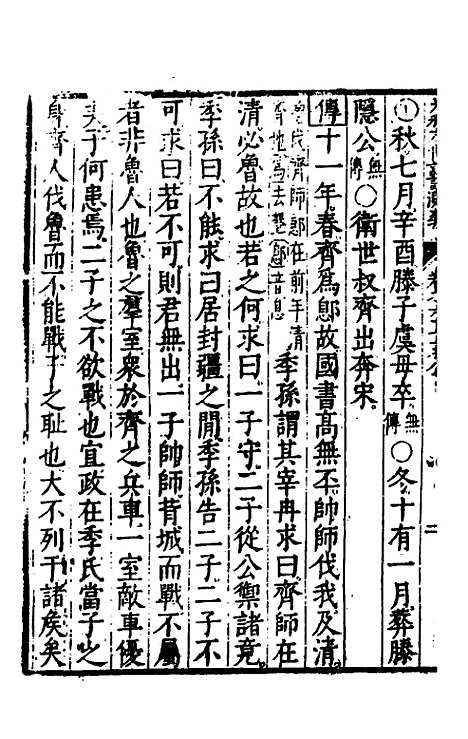 秋七月辛酉滕子虞毋卒無傳〇冬十有一月葬滕
隱公無傳〇衛世叔齊出奔宋
傳十一年春齊為鄎故國書高無㔻帥師伐我及清
伐齊師鄎在前年清齊地鄎音息季孫謂其宰冉求曰齊師在
清必魯故也若之何求曰一子守二子從公禦諸竟
季孫曰不能求曰居封疆之間季孫告二子二子不
可求曰若不可則君無出一子帥師背城而戰不屬
者非魯人也魯之羣室衆於齊之兵車一室敵車優
矣子何患焉二子之不欲戰也宜政在季氏當子之
身齊人伐魯而不能戰子之耻也大不列于諸矦矣